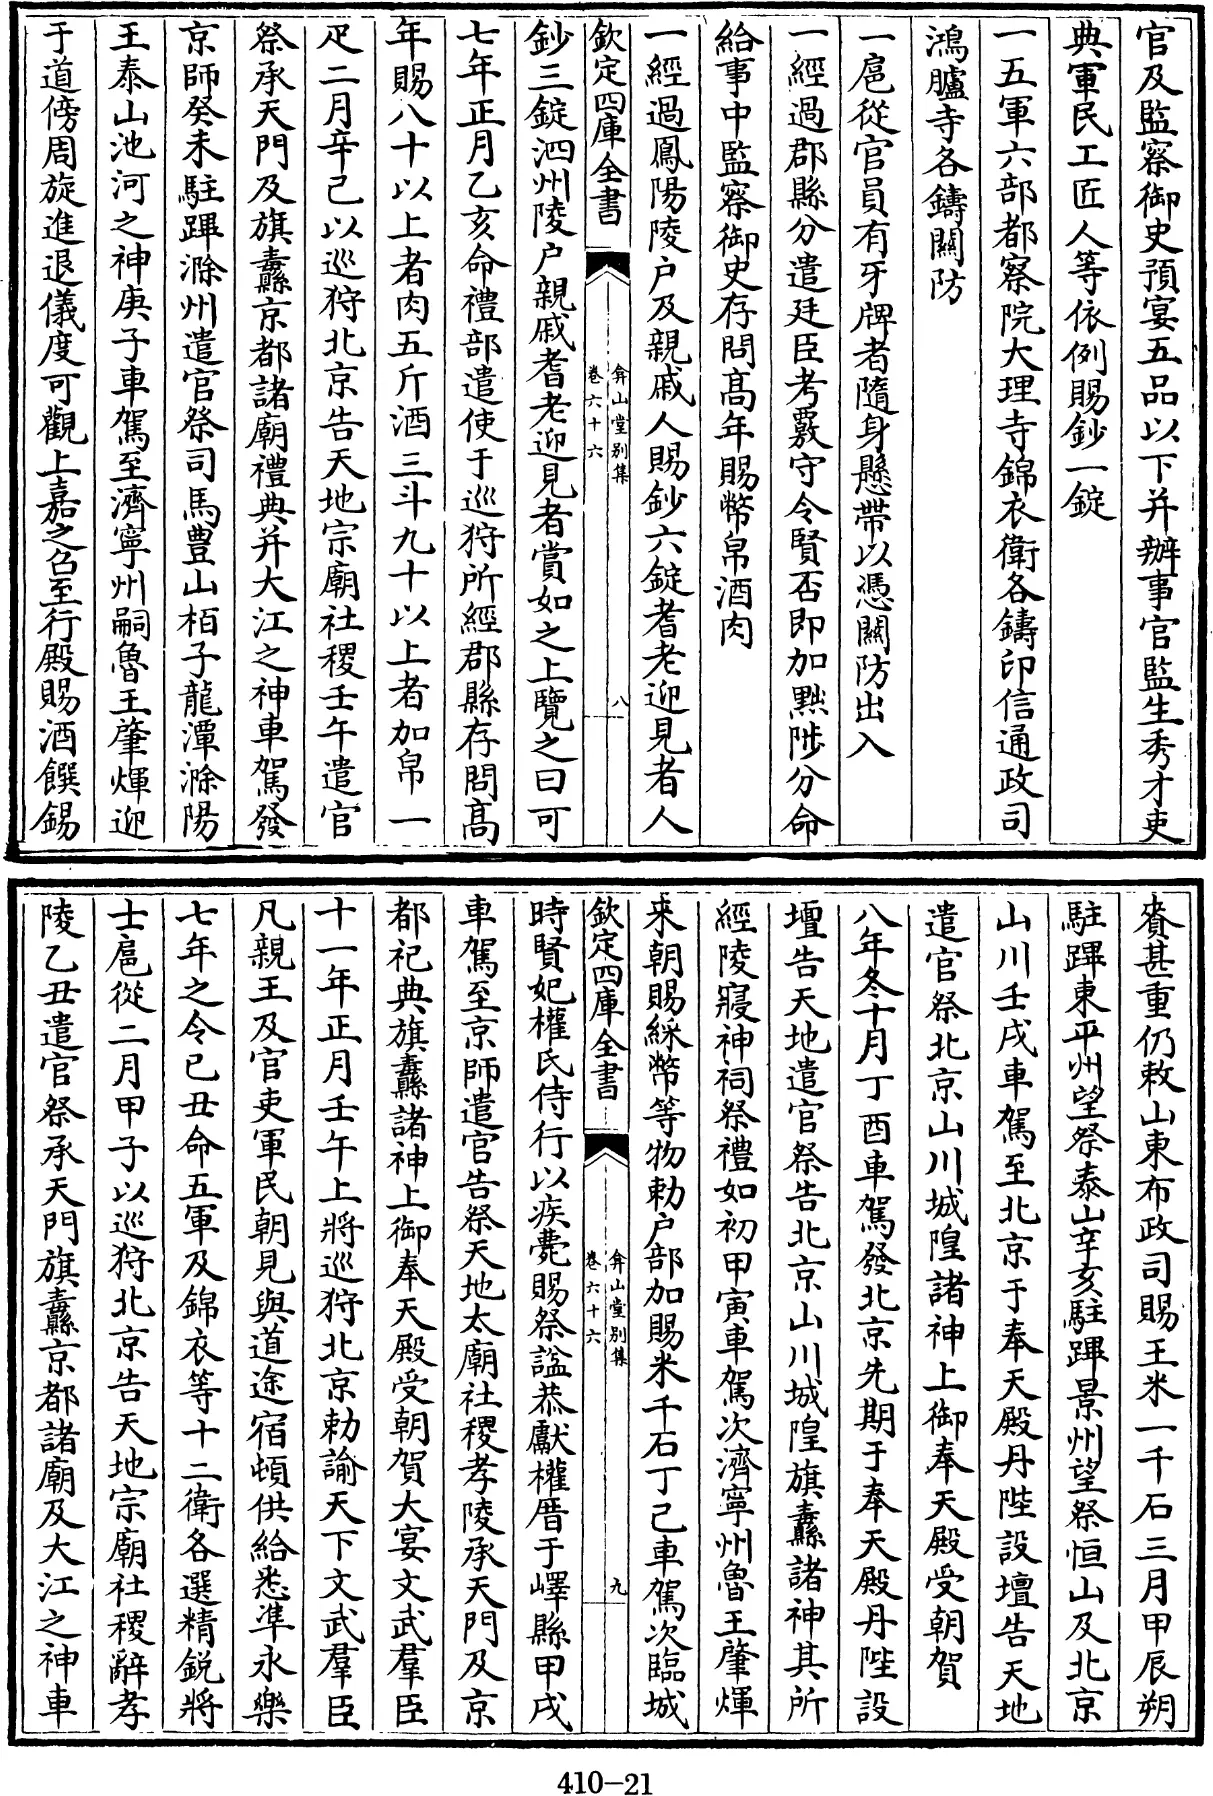 官及監察御史預宴五品以下并辦事官監生秀才吏
典軍民工匠人等依例賜鈔一錠
一五軍六部都察院大理寺錦衣衛各鑄印信通政司
鴻臚寺各鑄關防
一扈從官員有牙牌者隨身懸帶以憑關防出入
一經過郡縣分遣廷臣考覈守令賢否即加黜陟分命
給事中監察御史存問髙年賜幣帛酒肉
一經過鳳陽陵户及親戚人賜鈔六錠耆老迎見者人
欽定四庫全書
弇山堂别集
卷六十六
八
鈔三錠泗州陵户親戚耆老迎見者賞如之上覽之曰可
七年正月乙亥命禮部遣使于巡狩所經郡縣存問髙
年賜八十以上者肉五斤酒三斗九十以上者加帛一
疋二月辛己以巡狩北京告天地宗廟社稷壬午遣官
祭承天門及旗纛京都諸廟禮典并大江之神車駕發
京師癸未駐蹕滁州遣官祭司馬豊山栢子龍潭滁陽
王泰山池河之神庚子車駕至濟寧州嗣魯王肇煇迎
于道傍周旋進退儀度可觀上嘉之召至行殿賜酒饌錫
賚甚重仍敕山東布政司賜王米一千石三月甲辰朔
駐蹕東平州望祭泰山辛亥駐蹕景州望祭恒山及北京
山川壬戌車駕至北京于奉天殿丹陛設壇告天地
遣官祭北京山川城隍諸神上御奉天殿受朝賀
八年冬十月丁酉車駕發北京先期于奉天殿丹陛設
壇告天地遣官祭告北京山川城隍旗纛諸神其所
經陵寢神祠祭禮如初甲寅車駕次濟寧州魯王肇煇
来朝賜綵幣等物勅户部加賜米千石丁己車駕次臨城
欽定四庫全書
弇山堂别集
卷六十六
九
時賢妃權氏侍行以疾薨賜祭諡恭獻權厝于嶧縣甲戌
車駕至京師遣官告祭天地太廟社稷孝陵承天門及京
都祀典旗纛諸神上御奉天殿受朝賀大宴文武羣臣
十一年正月壬午上將巡狩北京勅諭天下文武羣臣
凡親王及官吏軍民朝見與道途宿頓供給悉準永樂
七年之令已丑命五軍及錦衣等十二衛各選精鋭將
士扈從二月甲子以巡狩北京告天地宗廟社稷辭孝
陵乙丑遣官祭承天門旗纛京都諸廟及大江之神車
410-21